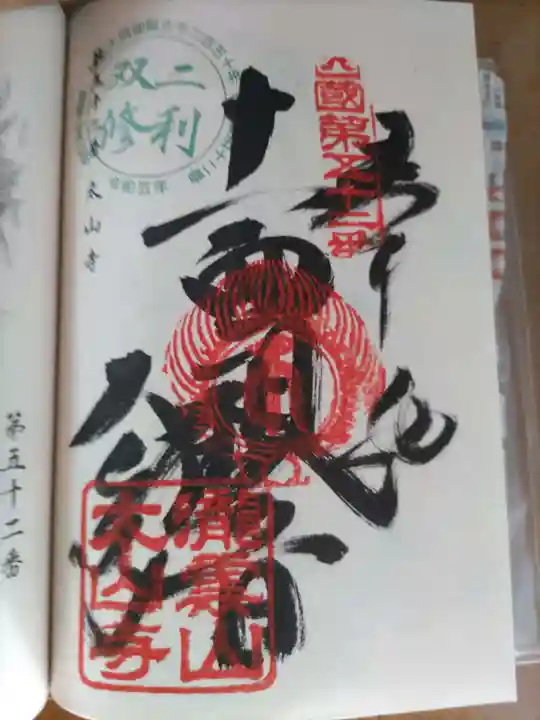 四國第五十二番
奉拝
十一面観世音
太山寺
瀧雲山
太山寺
二利
双修
第五十二番
太山寺